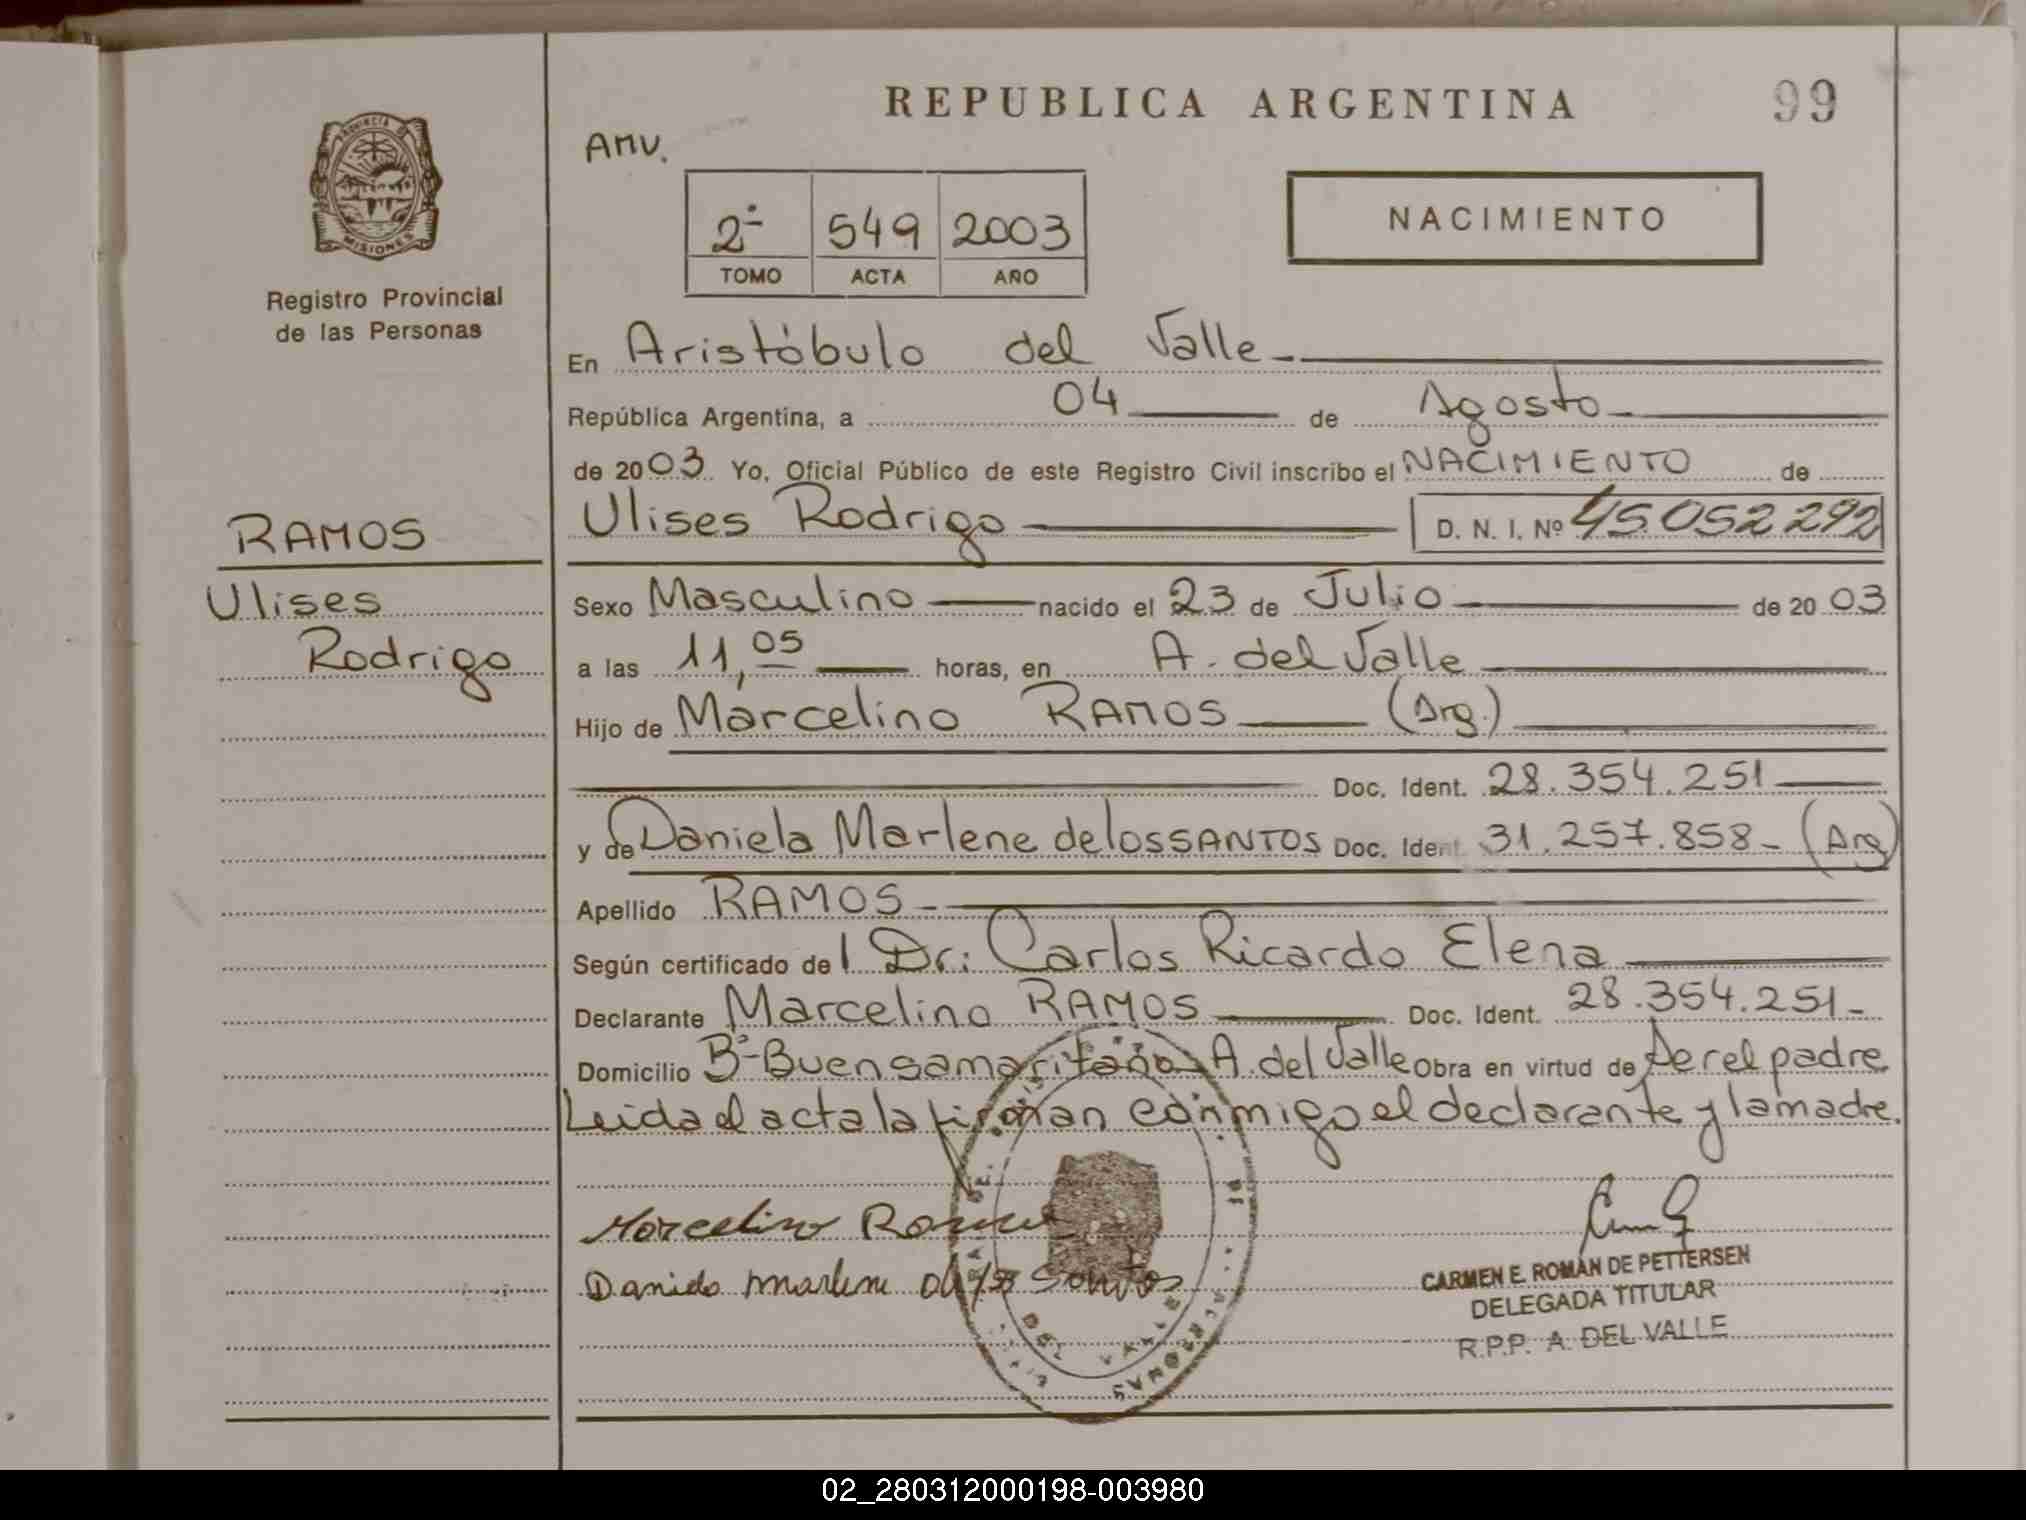 REPUBLICA ARGENTINA
99
PROVINCIA DE
MISIONES
Registro Provincial
de las Personas
AMV.
2º 549 2003
TOMO ACTA AÑO
NACIMIENTO
En Aristóbulo del Valle
República Argentina, a 04 de Agosto
de 2003 Yo, Oficial Público de este Registro Civil inscribo el NACIMIENTO de
RAMOS
Ulises Rodrigo D. N. I. Nº 45.052.292
Ulises
Rodrigo
Sexo Masculino nacido el 23 de Julio de 2003
a las 11,05 horas, en A. del Valle
Hijo de Marcelino RAMOS (Arg.)
Doc. Ident. 28.354.251
y de Daniela Marlene de los SANTOS Doc. Ident. 31.257.858 - (Arg)
Apellido RAMOS
Según certificado del Dr: Carlos Ricardo Elena
Declarante Marcelino RAMOS Doc. Ident. 28.354.251-
Domicilio Bº Buen samaritano A. del Valle Obra en virtud de ser el padre
Leida el acta la firman conmigo el declarante y la madre.
Marcelino Ramos
Daniela Marlene de los Santos
CARMEN E. ROMAN DE PETTERSEN
DELEGADA TITULAR
R.P.P. A. DEL VALLE
DEL VALLE
02_280312000198-003980